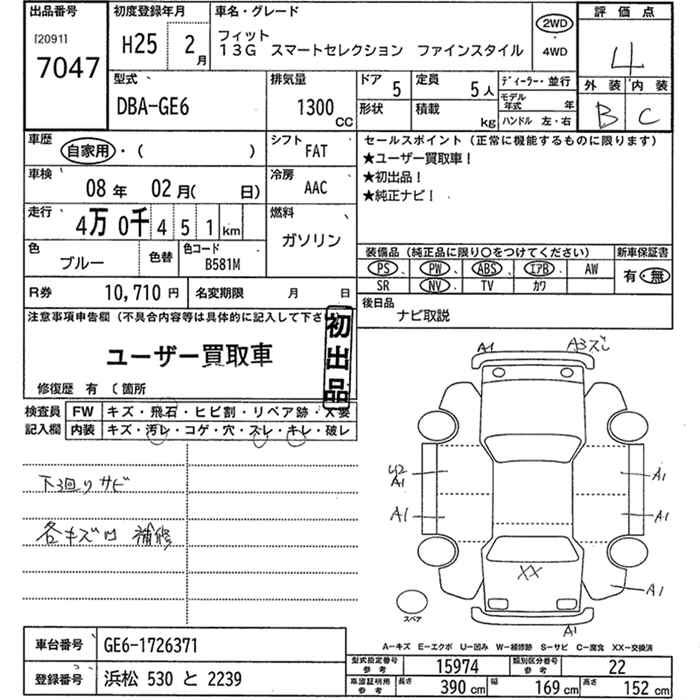 出品番号 初度登録年月 車名・グレード 評価点
[2091]
7047
H25 2月
フィット
13G スマートセレクション ファインスタイル
2WD
4WD
4
外装 内装
B C
型式 排気量 ドア 定員 ディーラー・並行
DBA-GE6 1300CC 5 5人
モデル年式 年
形状 積載 kg ハンドル 左・右
車歴 自家用・( )
シフト FAT
セールスポイント(正常に機能するものに限ります)
★ユーザー買取車!
★初出品!
★純正ナビ!
車検 08年 02月( 日)
冷房 AAC
走行 4万0千451km
燃料 ガソリン
色 ブルー 色替 色コード B581M
装備品(純正品に限り○をつけてください) 新車保証書
PS PW ABS エアB AW
SR NV TV カワ
有・無
R券 10,710円 名変期限 月 日
後日品
ナビ取説
注意事項申告欄(不具合内容等は具体的に記入して下さ
初出品
ユーザー買取車
修復歴 有 〔箇所
検査員記入欄
FW キズ・飛石・ヒビ割・リペア跡・X要
内装 キズ・汚レ・コゲ・穴・スレ・キレ・破レ
下廻りサビ
各キズ 補修
A1 A3ズレ
U2
A1 A1
A1 A1
XX
A1
スペア
A1
A―キズ E―エクボ U―凹み W―補修跡 S―サビ C―腐食 XX―交換済
車台番号 GE6-1726371
型式指定番号 参考 15974 類別区分番号 参考 22
登録番号 浜松 530 と 2239
車庫証明用 参考 長さ 390cm 幅 169cm 高さ 152cm